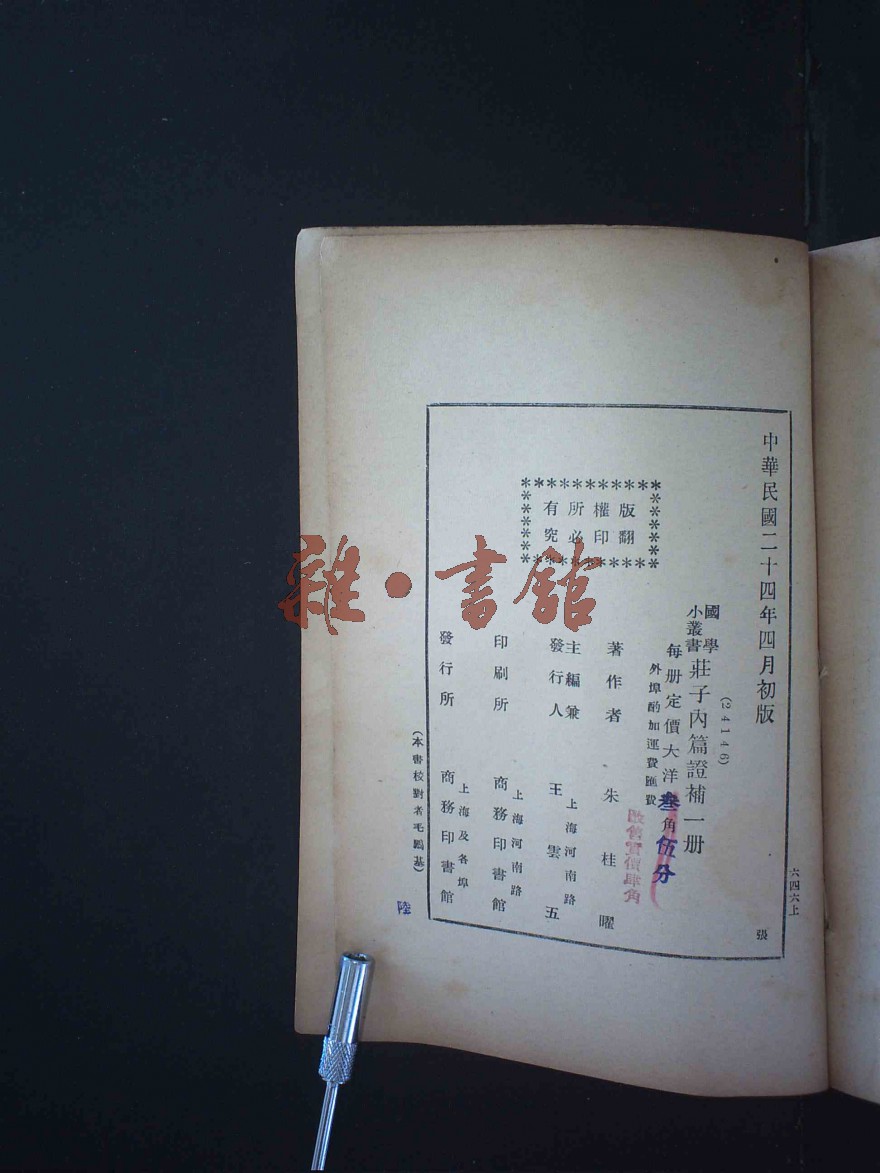 中華民國二十四年四月初版
六四六上
張
(24146)
國學小叢書
莊子內篇證補一册
每册定價大洋叁角伍分
外埠酌加運費匯費
改售實價肆角
版權所有
翻印必究
著作者 朱桂曜
主編兼發行人 上海河南路 王雲五
印刷所 上海河南路 商務印書館
發行所 上海及各埠 商務印書館
(本書校對者毛鵾基)
陸
雜·書館